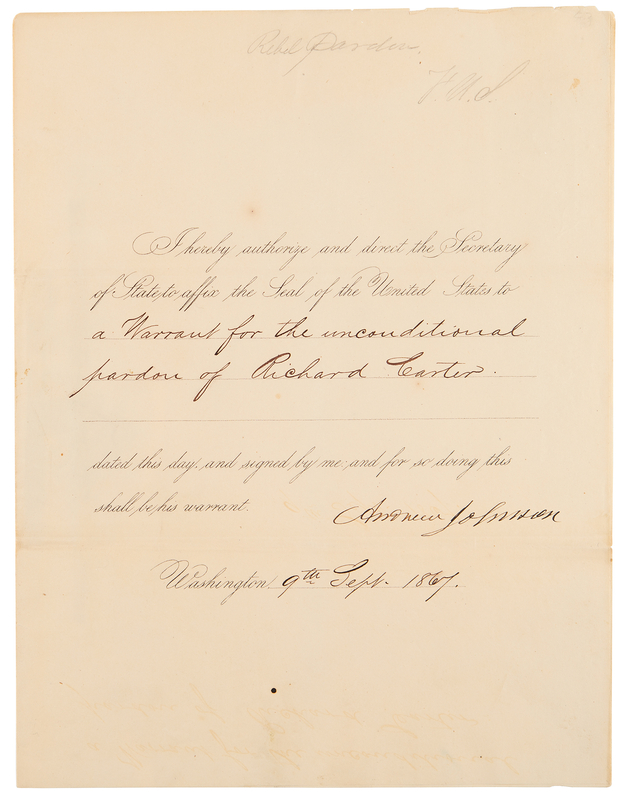 Rebel Pardon.
I hereby authorize and direct the Secretary
of State to affix the Seal of the United States to
a Warrant for the unconditional
pardon of Richard Carter.
dated this day, and signed by me; and for so doing this
shall be his warrant.
Andrew Johnson
Washington, 9th Sept. 1867.